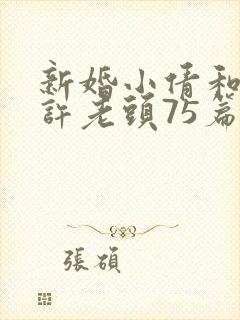 新婚小倩和
許老頭75篇
張碩